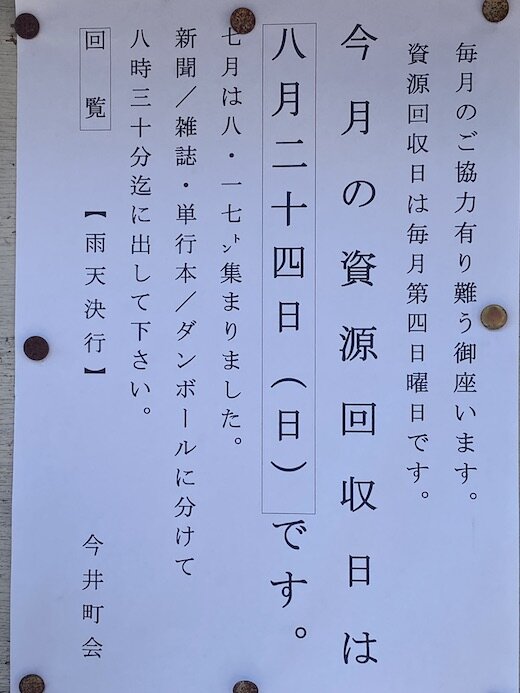 毎月のご協力有り難う御座います。
資源回収日は毎月第四日曜日です。
今月の資源回収日は
八月二十四日（日）です。
七月は八・一七㌧集まりました。
新聞／雑誌・単行本／ダンボールに分けて
八時三十分迄に出して下さい。
回覧　【雨天決行】　今井町会